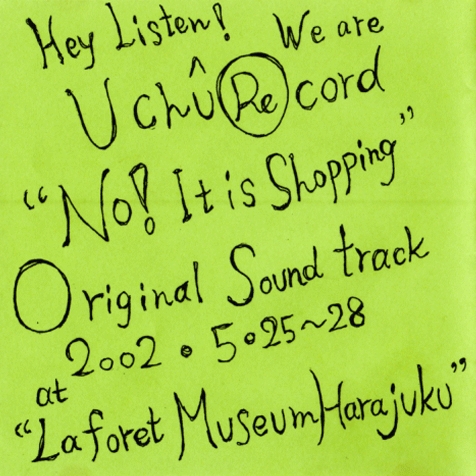 Hey Listen! We are
Uchû Record
“No! It is Shopping”
Original Sound track
2002 • 5 • 25~28
at
“Laforet Museum Harajuku”